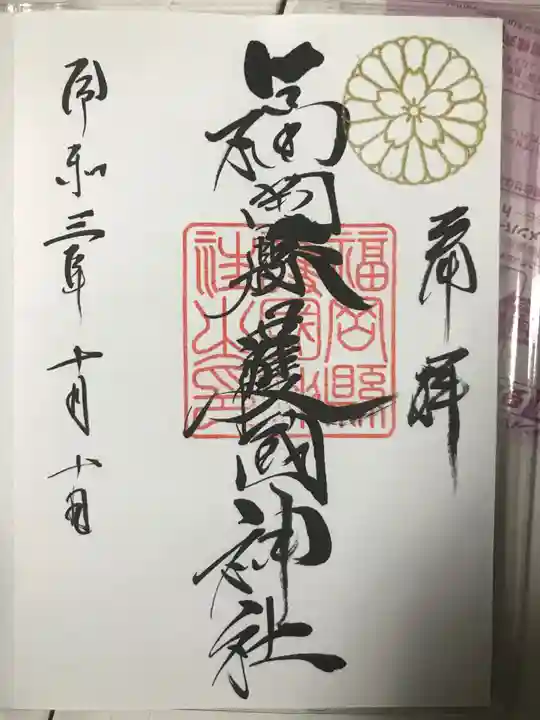 奉拝
福岡縣護國神社
令和三年十月十日
福岡縣
護國神
社之印